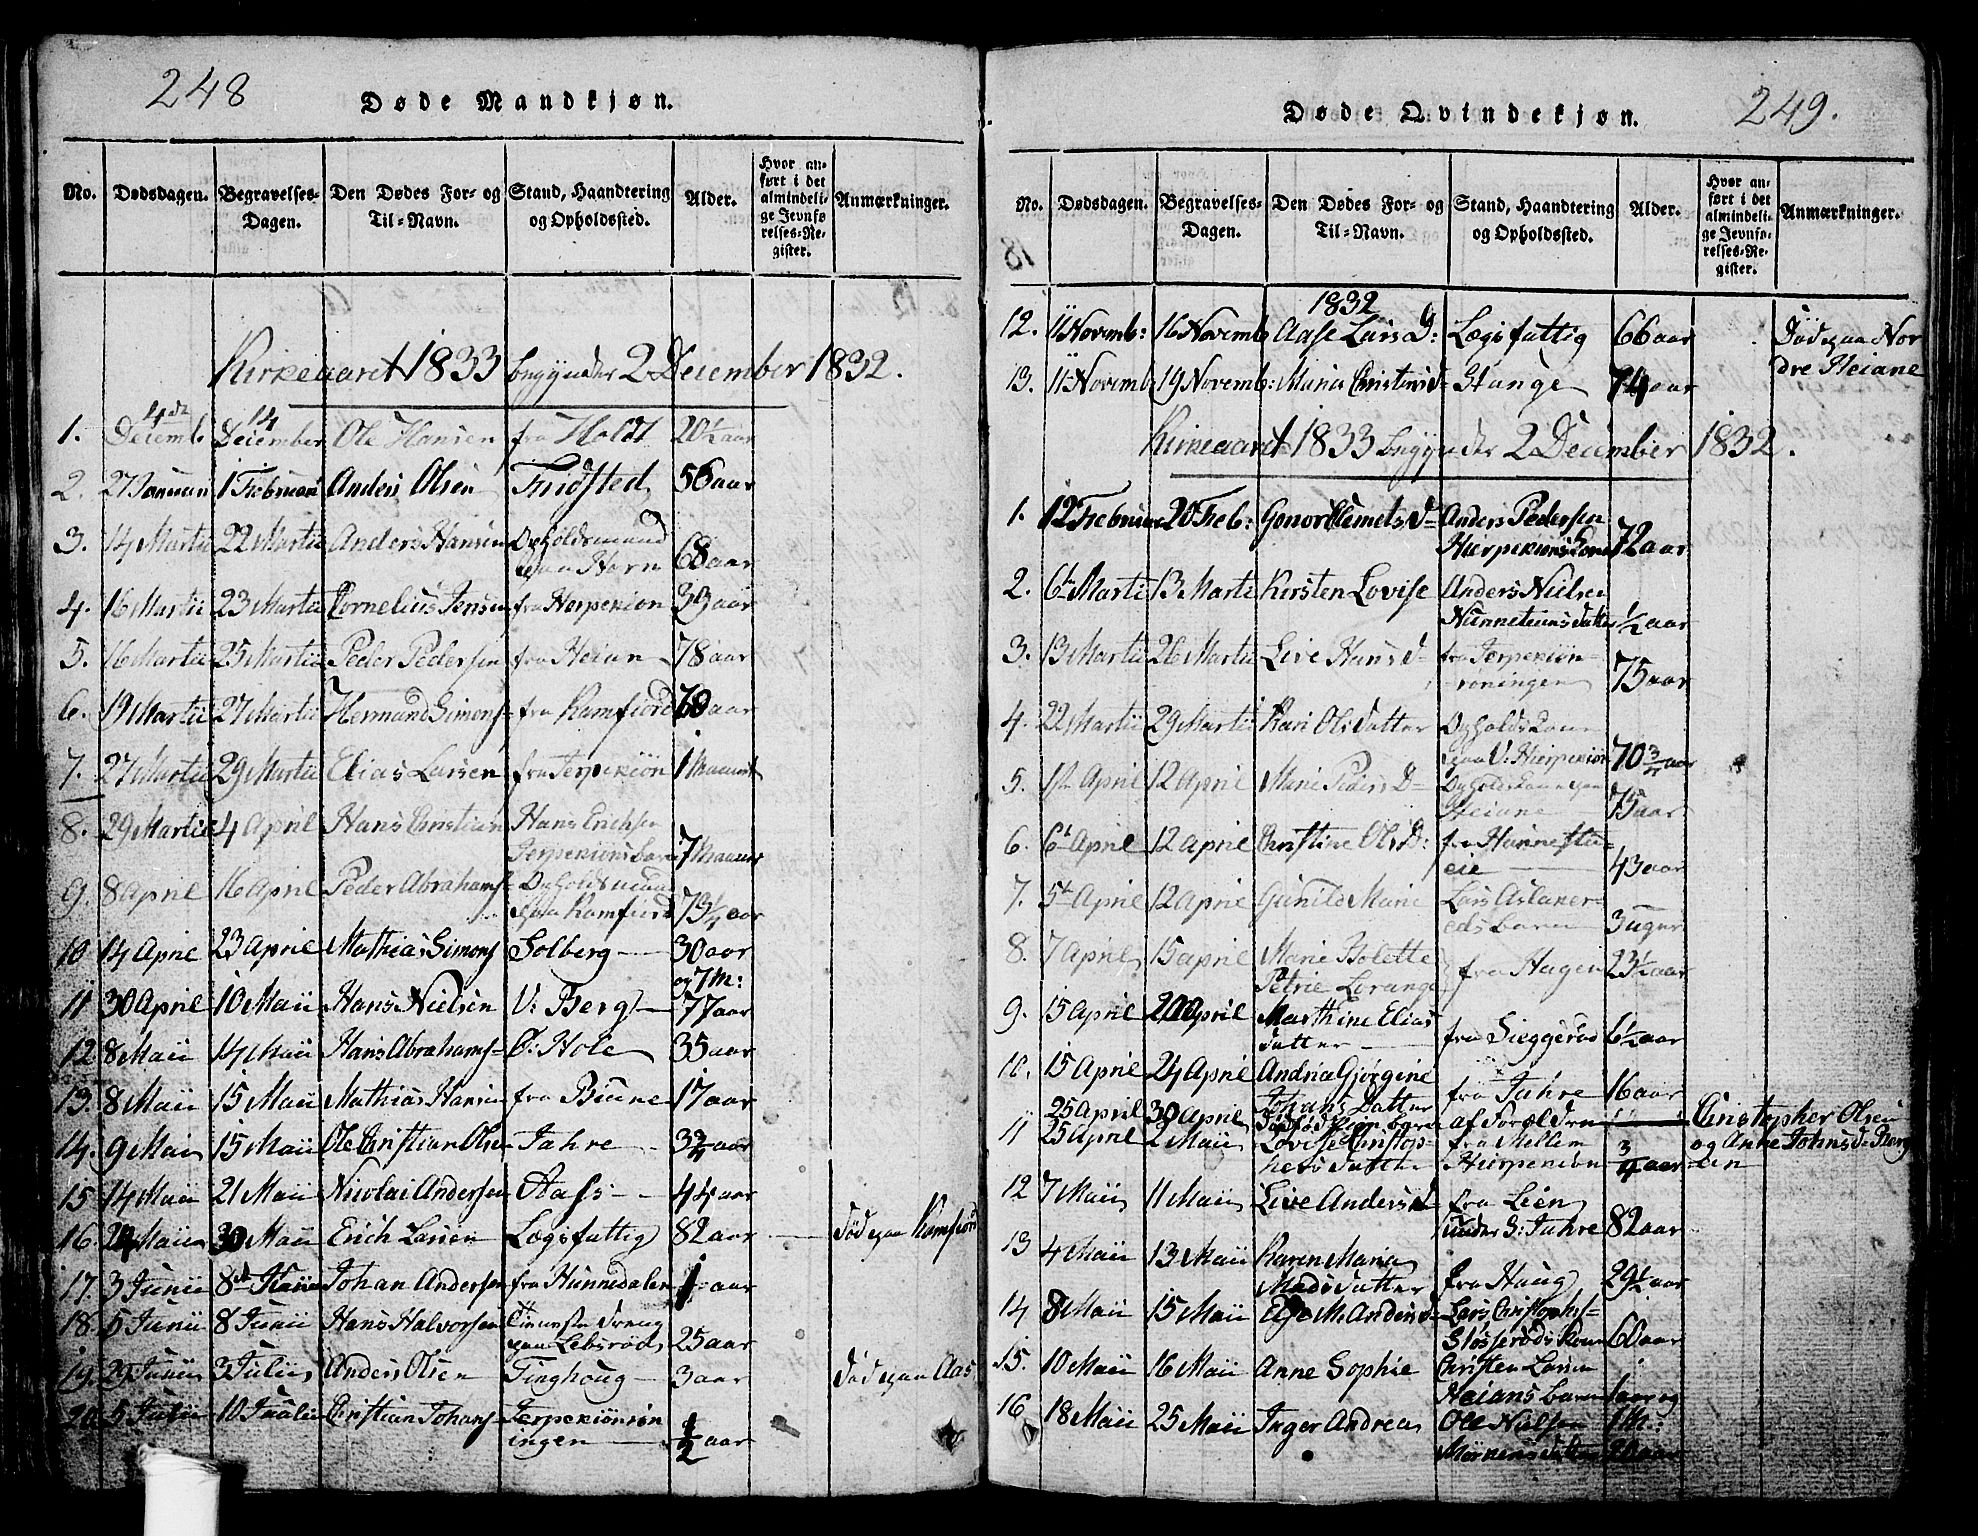 248
Døde Mandkjøn.
No. Dødsdagen. Begravelses-Dagen. Den Dødes For- og Til-Navn. Stand, Haandtering og Opholdssted. Alder. Hvor anført i det almindelige Jevnførelses-Register. Anmærkninger.
Kirkeaaret 1833 begynder 2 December 1832.
1. 4de Decemb 14 December Ole Hansen fra Holdt 20½ aar
2. 27 Januari 1 Februari Anders Olsen Tridsted 56 aar
3. 14 Martii 22 Martii Anders Hansen Opholdsmand
paa Horn 68 aar
4. 16 Martii 23 Martii Cornelius Jensen fra 39 aar
5. 16 Martii 25 Martii Peder Pedersen fra Heian 78 aar
6. 19 Martii 27 Martii Hermand Simons- fra Ramfiord aar
7. 27 Martii 29 Martii Elias Larsen fra Jerpekiön 1 Maaned
8. 29 Martii 4 April Hans Christian Hans Erichsen
Jerpekiöns barn 7 Maaned
9. 8 April 16 April Peder Abrahams- Opholdsmand
paa Ramfiord 73¼ aar
10 14 April 23 April Mathias Simons Solberg 30 aar
og 7 M:
11 30 April 10 Maii Hans Nielsen V: Berg 77 aar
12 8 Maii 14 Maii Hans Abrahams- Ö: Hole 35 aar
13. 8 Maii 15 Maii Mathias Hansen fra 17 aar
14. 9 Maii 15 Maii Ole Christian Olsen Jahre aar
15 14 Maii 21 Maii Nicolai Andersen Aass 44 aar
16. Maii 30 Maii Erich Larsen Lægsfattig 82 aar Död paa Ramfiord
17. 3 Junii 8de Junii Johan Andersen fra Hunnedalen 1 aar
18. 5 Junii 8 Junii Hans Halvorsen Tieneste Dreng
paa Lebsröd 25 aar
19. 29 Junii 3 Julii Anders Olsen Tinghoug 3 aar Död paa Aas
20. 5 Julii 10 Julii Cristian Johans-
ingen ½ aar
249.
Døde Qvindekjøn.
No. Dødsdagen. Begravelses-Dagen. Den Dødes For- og Til-Navn. Stand, Haandtering og Opholdssted. Alder. Hvor anført i det almindelige Jevnførelses-Register. Anmærkninger.
1832
12. 11 Novemb: 16 Novemb Aase Lars D: Lægsfattig 66 aar Död paa Nor
dre Heiane
13. 11 Novemb 19 Novemb: Maria Christens D- Hauge 74 aar
Kirkeaaret 1833 begynder 2 December 1832.
1. 12 Februar 20 Feb: Gonor Clemets D- Anders Pedersen
Hierpekiöns Kone 72 aar
2. 6te Martii 13 Martii Kirsten Lovise Anders Nielsen
datter ½ aar
3. 13 Martii 26 Martii Live Hans D- fra Jerpekiön-
roningen 75 aar
4. 22 Martii 29 Martii Kari Olsdatter Opholdskone
paa V: Hierpekiön 70¾ aar
5. 1ste April 12 April Marie Peders D- Opholdskone paa
Heiane 75 aar
6. 6te April 12 April Christine Ols D: fra Hunnestu-
eie 43 aar
7. 5te April 12 April Gunild Marie Lars Aslaker-
eds barn 3 uger
8. 7 April 15 April Marie Bolette
Petrie Lorange fra Hagen 23½ aar
9. 15 April 20 April Marthine Elias
datter fra Sieggeröd 6½ aar
10. 15 April 24 April Andria Gjörgine
Johans Datter fra Jahre 16 aar
25 April 30 April Dödföd Pigebarn af Foræl Cristopher Olsen
11 25 April 2 Maii Lovise Christop- fra Mellem og Anne Johns D:
hers datter Hierpekiön ¾ aar
12 7 Maii 11 Maii Live Anders D fra Lien
under S: Jahre 82 aar
13 4 Maii 13 Maii Karen Maria
Mads datter fra Haug 29½ aar
14 8 Maii 15 Maii M. Anders D- Lars Cristophs-
Slösseröds Kone 60 aar
15. 10 Maii 16 Maii Anne Sophie Cristen Larsen
Heians barn 1 aar og
16 18 Maii 25 Maii Inger Andrea Ole Nielsen 1 M:
aar